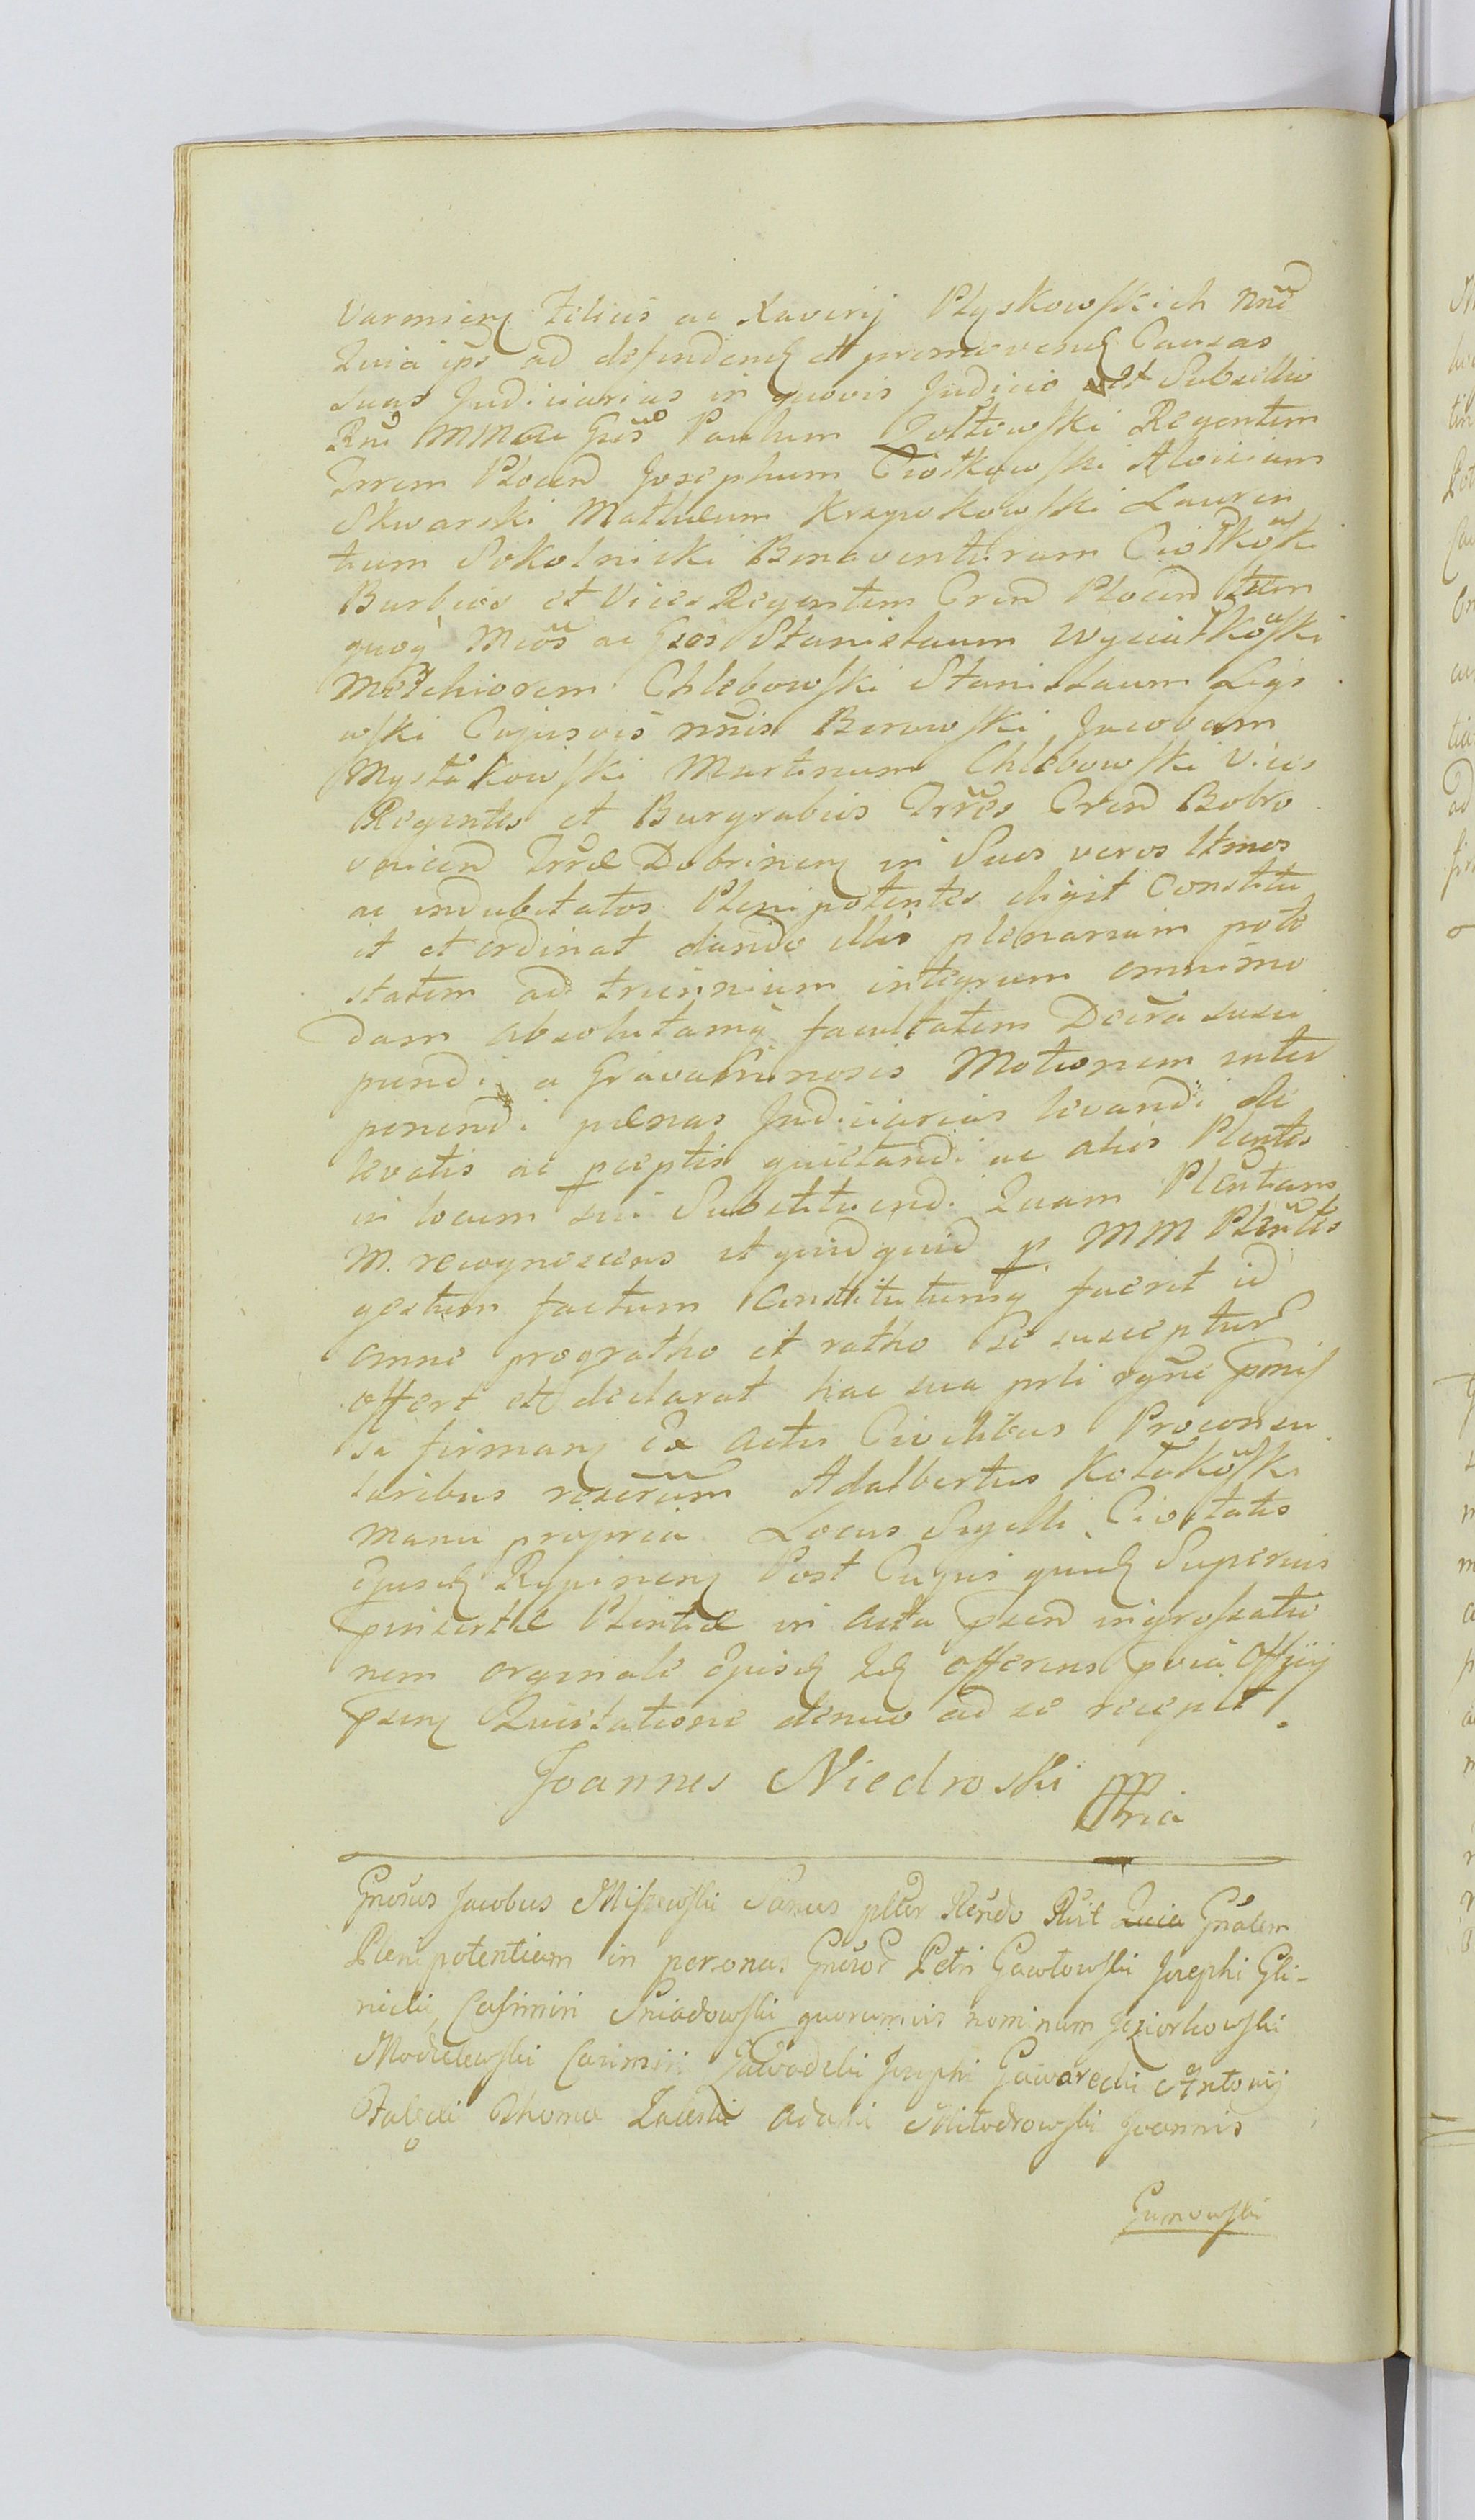 Varmien Filius ac Xaverij Plyskowskich nne
Quia ips ad defendend et promovend Causas
Suas Judiciarias in quovis Judicio et Subsellio
Rne MM ac Gsos Paulum Zoltowski Regentem
Trrem Plocen Josephum Ciołkowski Aloisium
Skwarski Mathæum Krzywkowski Lauren
tium Sokolnicki Bonaventuram Ciołkoski
Burbios et Vices Regentem Cren Plocen tum
quoq Mcos ac Gsos Stanislaum Wyciałkoski
Melchiorem Chlebowski Stanislaum Ligo
wski Cujusvis nnis Borowski Jacobum
Mystkowski Martinum Chlebowski Vices
Regentes et Burgrabios Trres Cren Bobro
vnicen Trræ Dobrinen in Suos veros ltmos
ac indubitatos Plenipotentes eligit Constitu
it et ordinat dando illis plenariam pote
statem ad triennium integrum omnimo
dam absolutamq facultatem Decra susci
piendi a Gravaminosis Motionem inter
ponendi pænas Judiciarias levandi de
levatis ac pceptis quietandi ac alios Plentes
in locum sui Substituendi Quam Plentiam
M. recognoscens et quidquid p MM Plentes
gestum factum Constitutumq fuerit id
omne progratho et ratho se suscepture
offert et declarat hac sua prti rgne pmis
sa firman Ex Actis Civilibus Proconsu
laribus reserum Adalbertus Kołakoski
manu propria Locus Sigilli Civitatis
Ejusd Rypinen Post Cujus quid Superius
pinsertæ Plentiæ in acta psen ingrossatio
nem orginale Ejusd Id offerens pvia Offcij
psen Quietatione denuo ad se recepit.
Joannes Niedroski
mpria
Gnosus Jacobus Miszewski Sanus plter Rendo Rvit Quia Gnalem
Plenipotentiam in personas Gnosor Petri Gawłowski Josephi Gli-
nicki, Casimiri Sniadowski quorumvis nominum Jeziorkowski
Modzelewski Casimiri Zawadzki Josephi Gawarecki Antonij
Thoma Adami Miłodrowski Joannis
Gumowski